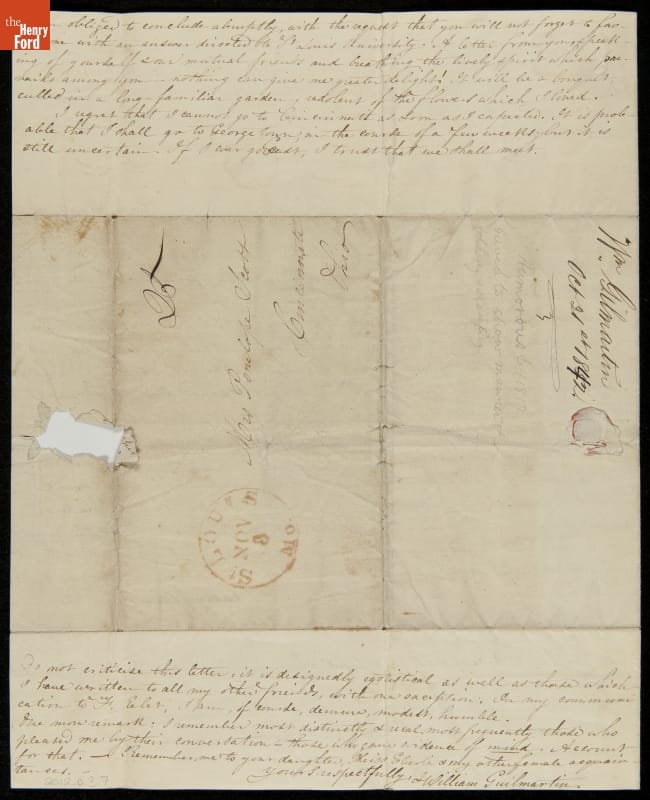 the
Henry
Ford
obliged to conclude abruptly, with the request that you will not forget to fa-
me with an answer directed to St Louis University. A letter from you speak-
ing of yourself & our mutual friends and breathing the lively spirit which pre-
vails among you nothing can give me greater delight! It will be a bouquet,
culled in a long-familiar garden, redolent of the flowers which I loved.
I regret that I cannot go to Cincinnati as soon as I expected. It is prob-
able that I shall go to George Town in the course of a few weeks; but it is
still uncertain. If I ever go east, I trust that we shall meet.
25
Mrs Penelope Scott
Cincinnati
Ohio
St LOUIS
NOV
Mo.
Wm Guilmartin
Oct 21st 1842.
3
Do not criticise this letter; it is designedly egotistical as well as those which
I have written to all my other friends, with one exception. In my communi-
cation to I am, of course, demure, modest, humble.
One more remark: I remember most distinctly & most frequently those who
pleased me by their conversation – those who gave evidence of mind. Account
for that. – Remember me to your daughter, Miss & my other female acquain-
tances. –
Yours respectfully William Guilmartin.